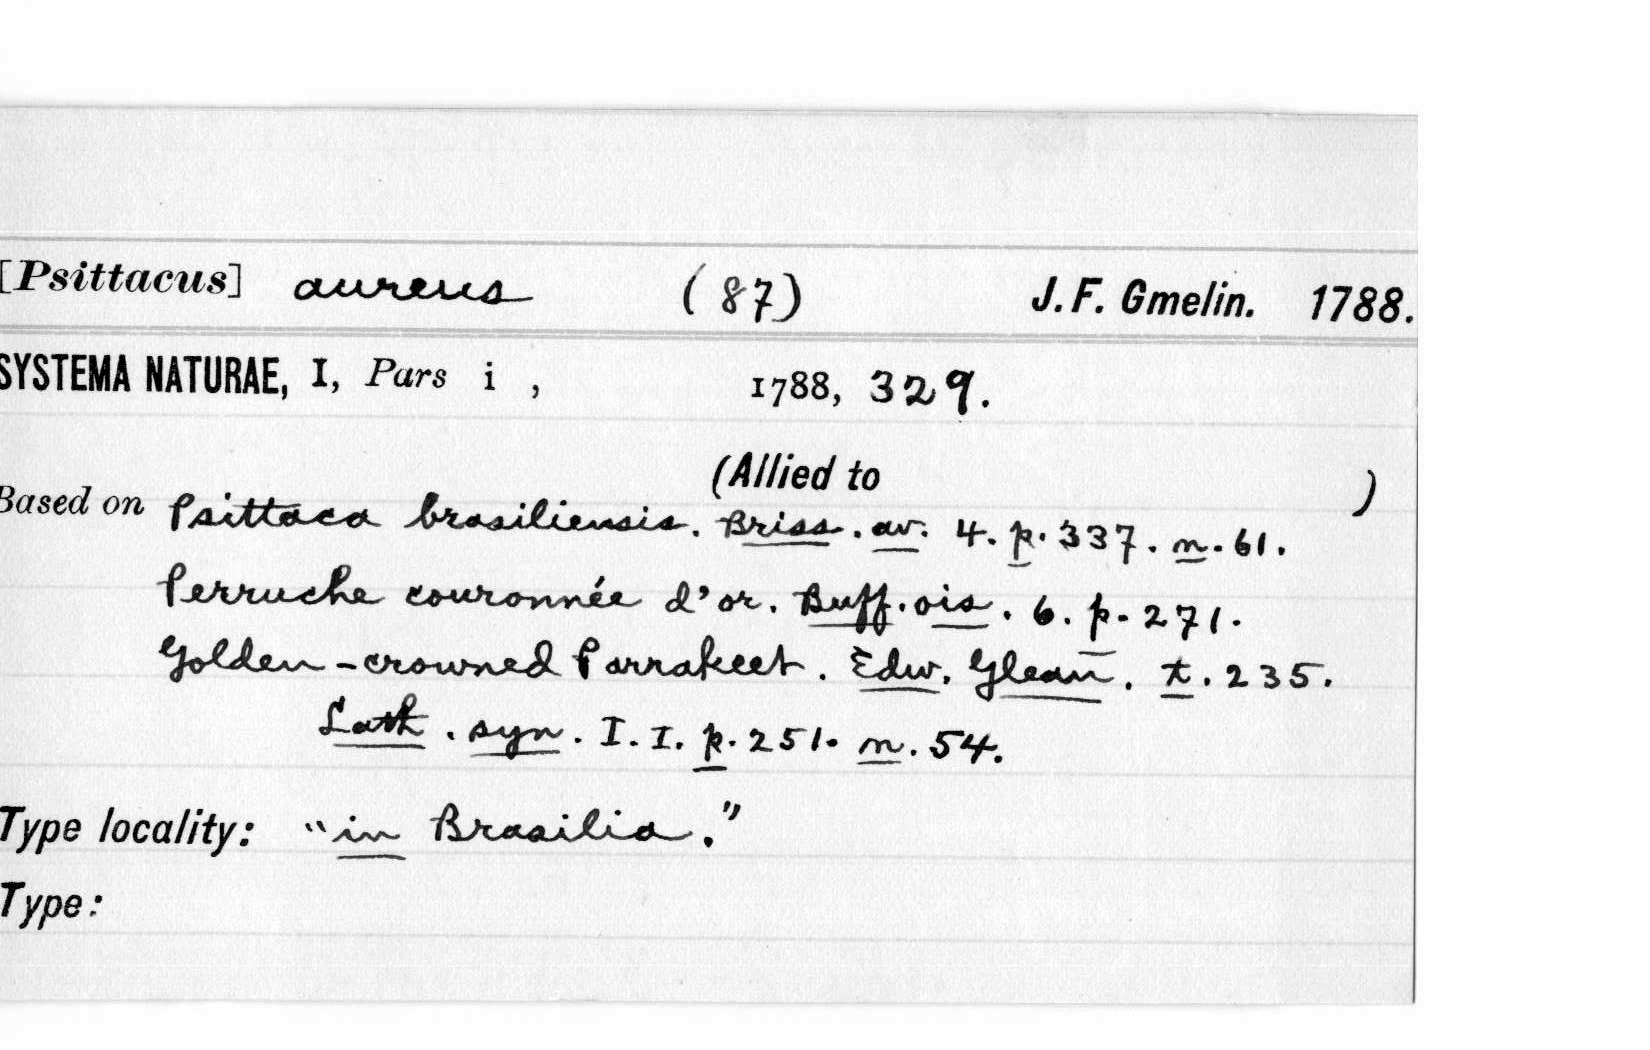 [Psittacus] aureus (87) J. F. Gmelin. 1788.
SYSTEMA NATURAE, I, Pars i , 1788, 329.
(Allied to )
Based on Psittaca brasiliensis. Briss. av. 4. p. 337. n. 61.
Perruche couronnée d'or. Buff. ois. 6. p. 271.
Golden-crowned Parrakeet. Edw. Glean. t. 235.
Lath. syn. I. I. p. 251. n. 54.
Type locality: "in Brasilia."
Type: